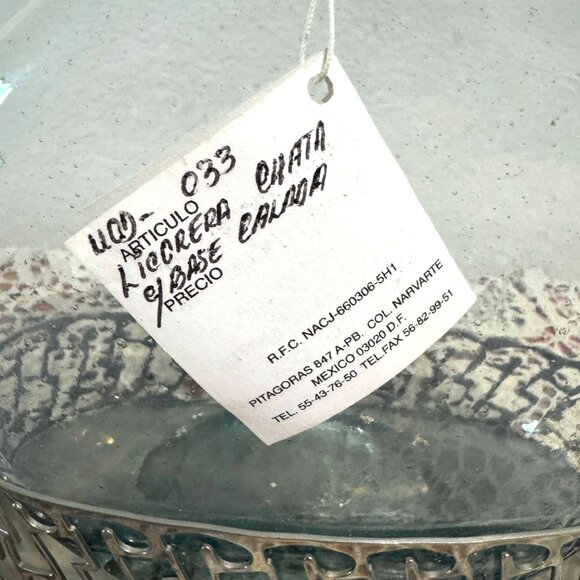 UCD- 033
ARTICULO
LICORERA CHATA
c/BASE CALADA
PRECIO
R.F.C. NACJ-660306-5H1
PITAGORAS 847 A-PB. COL. NARVARTE
MEXICO 03020 D.F.
TEL. 55-43-76-50 TEL.FAX 56-82-99-51